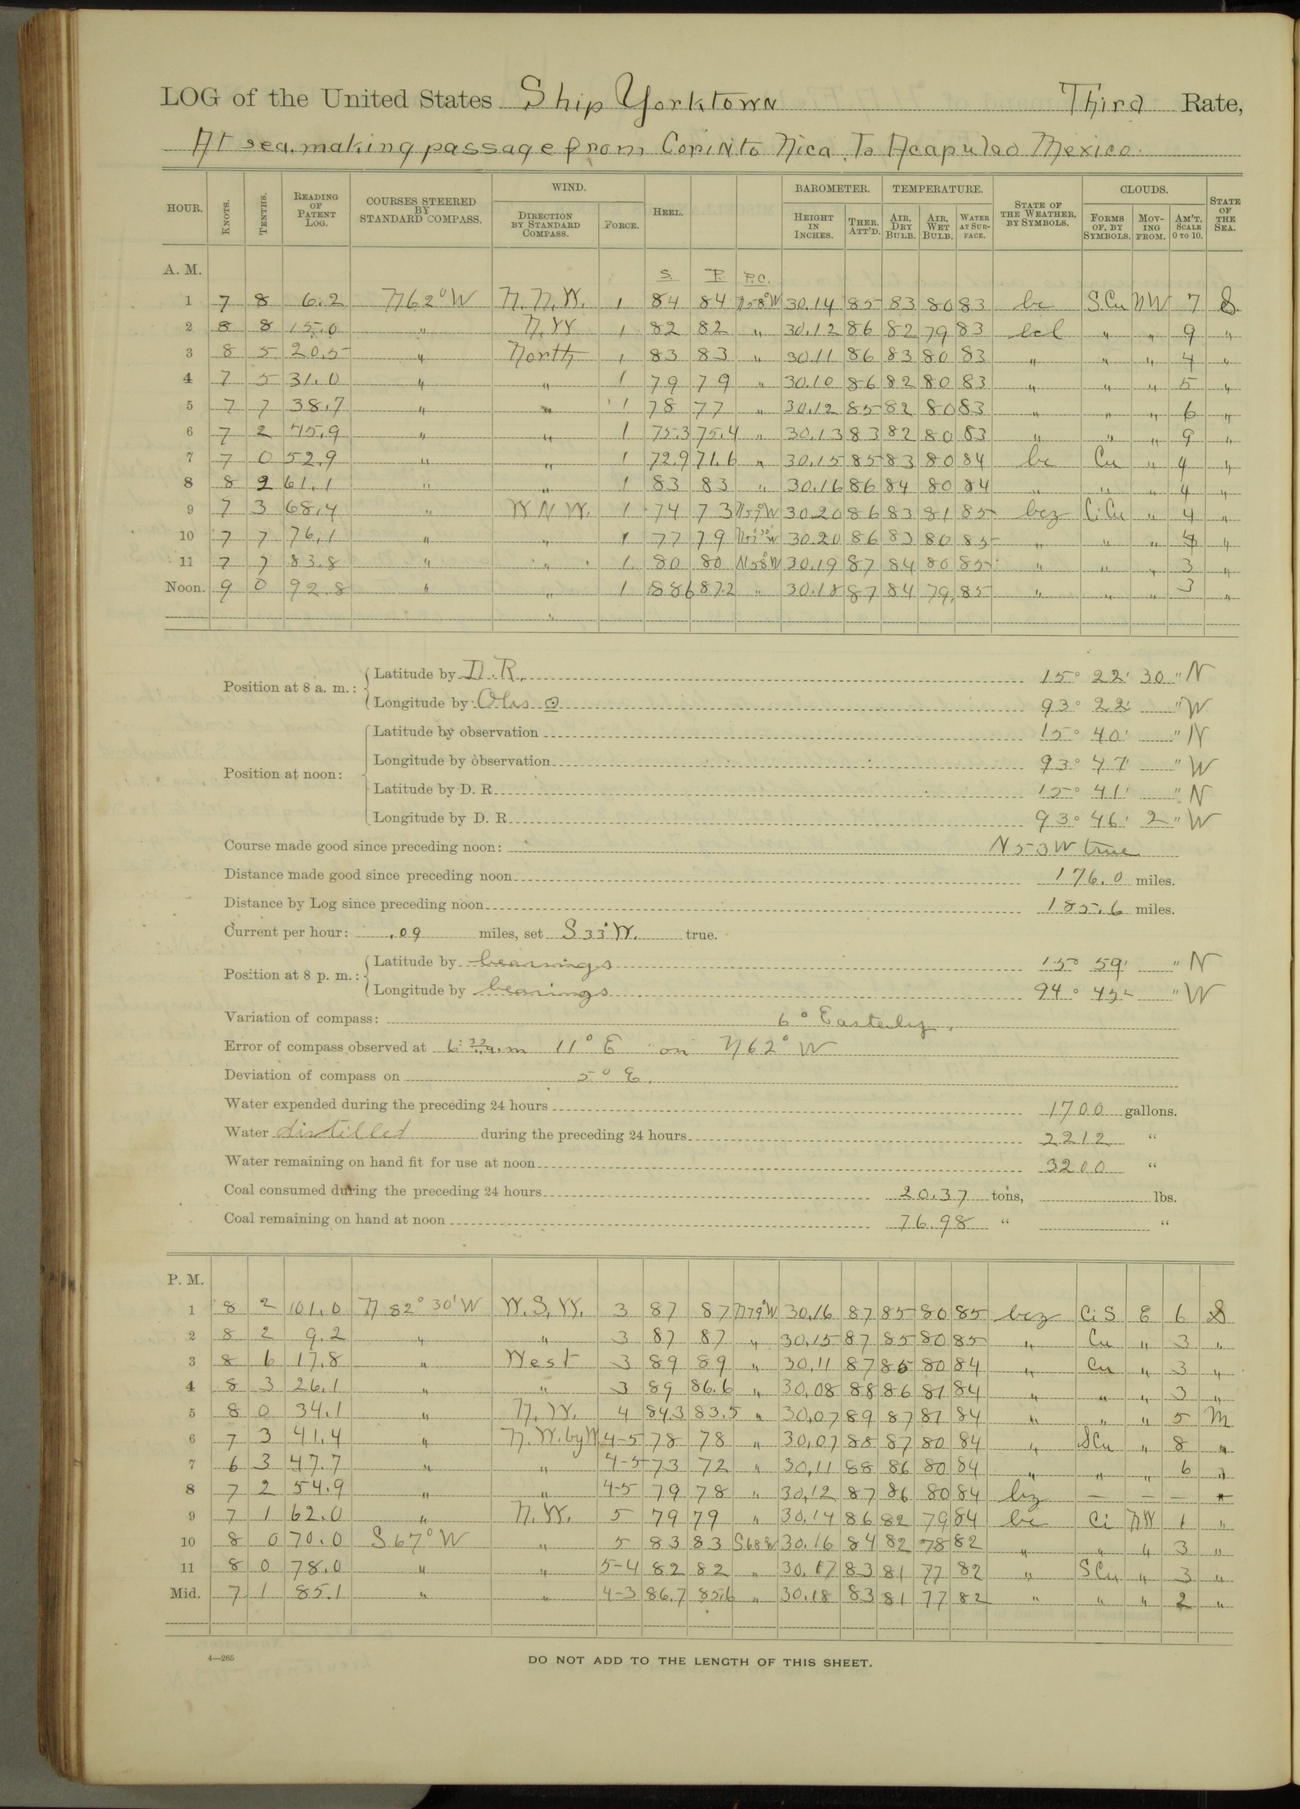 LOG of the United States Ship Yorktown Third Rate,
At sea, making passage from Corinto Nica. To Acapulco Mexico.
HOUR. KNOTS. TENTHS. READING OF PATENT LOG. COURSES STEERED BY STANDARD COMPASS. WIND. DIRECTION BY STANDARD COMPASS. FORCE. HEEL. BAROMETER. HEIGHT IN INCHES. THER. ATT'D. TEMPERATURE. AIR, DRY BULB. AIR, WET BULB. WATER AT SURFACE. STATE OF THE WEATHER, BY SYMBOLS. CLOUDS. FORMS OF, BY SYMBOLS. MOVING FROM. AM'T. SCALE 0 TO 10. STATE OF THE SEA.
A. M. S. P. P.C.
1 7 8 6.2 N62°W N.N.W. 1 84 84 N58°W 30.14 85 83 80 83 bc S.Cu NW 7 S
2 8 8 15.0 " N.W 1 82 82 " 30.12 86 82 79 83 bcl " " 9 "
3 8 5 20.5 " North 1 83 83 " 30.11 86 83 80 83 " " " 4 "
4 7 5 31.0 " " 1 79 79 " 30.10 86 82 80 83 " " " 5 "
5 7 7 38.7 " " 1 78 77 " 30.12 85 82 80 83 " " " 6 "
6 7 2 45.9 " " 1 75.3 75.4 " 30.13 83 82 80 83 " " " 9 "
7 7 0 52.9 " " 1 72.9 71.6 " 30.15 85 83 80 84 bc Cu " 4 "
8 8 2 61.1 " " 1 83 83 " 30.16 86 84 80 84 " " " 4 "
9 7 3 68.4 " W N W. 1 74 73 N59°W 30.20 86 83 81 85 bcz Ci.Cu " 4 "
10 7 7 76.1 " " 1 77 79 30.20 86 83 80 85 " " " 4 "
11 7 7 83.8 " " 1 80 80 N58W 30.19 87 84 80 85 " " " 3 "
Noon. 9 0 92.8 " " 1 88.6 87.2 " 30.18 87 84 79 85 " " " 3 "
"
Position at 8 a. m.: Latitude by D.R. 15° 22' 30" N
Longitude by Obs ⊙ 93° 22' " W
Position at noon: Latitude by observation 15° 40' " N
Longitude by observation 93° 47' " W
Latitude by D. R. 15° 41' " N
Longitude by D. R. 93° 46' 2" W
Course made good since preceding noon: N 53 W true
Distance made good since preceding noon 176.0 miles.
Distance by Log since preceding noon 185.6 miles.
Current per hour: .09 miles, set S33°W. true.
Position at 8 p. m.: Latitude by bearings 15° 59' " N
Longitude by bearings 94° 45' " W
Variation of compass: 6° Easterly.
Error of compass observed at 6:33 a.m 11° E on N62° W
Deviation of compass on 5° E.
Water expended during the preceding 24 hours 1700 gallons.
Water distilled during the preceding 24 hours 2212 "
Water remaining on hand fit for use at noon 3200 "
Coal consumed during the preceding 24 hours 20.37 tons, lbs.
Coal remaining on hand at noon 76.98 " "
P. M.
1 8 2 101.0 N 82° 30' W W.S.W. 3 87 87 N79°W 30.16 87 85 80 85 bcz Ci S E 6 S
2 8 2 9.2 " " 3 87 87 " 30.15 87 85 80 85 " Cu " 3 "
3 8 6 17.8 " West 3 89 89 " 30.11 87 85 80 84 " Cu " 3 "
4 8 3 26.1 " " 3 89 86.6 " 30.08 88 86 81 84 " " " 3 "
5 8 0 34.1 " N.W. 4 84.3 83.5 " 30.07 89 87 81 84 " " " 5 M
6 7 3 41.4 " N.W. by W. 4-5 78 78 " 30.07 88 87 80 84 " S Cu " 8 "
7 6 3 47.7 " " 4-5 73 72 " 30.11 88 86 80 84 " " " 6 "
8 7 2 54.9 " " 4-5 79 78 " 30.12 87 86 80 84 bz — — — "
9 7 1 62.0 " N.W. 5 79 79 " 30.14 86 82 79 84 bc Ci NW 1 "
10 8 0 70.0 S67°W " 5 83 83 S68W 30.16 84 82 78 82 " " " 3 "
11 8 0 78.0 " " 5-4 82 82 " 30.17 83 81 77 82 " S Cu " 3 "
Mid. 7 1 85.1 " " 4-3 86.7 85.6 " 30.18 83 81 77 82 " " " 2 "
4—265
DO NOT ADD TO THE LENGTH OF THIS SHEET.